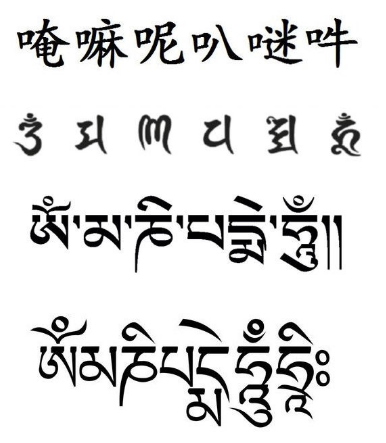 唵嘛呢叭𠺗吽
𑖌𑖼 𑖦 𑖜𑖰 𑖢 𑖟𑖿𑖦𑖸 𑖮𑖳𑖽
ཨོཾ་མ་ཎི་པདྨེ་ཧཱུྃ།།
ཨོཾམཎིཔདྨེཧཱུྃཧྲཱིཿ